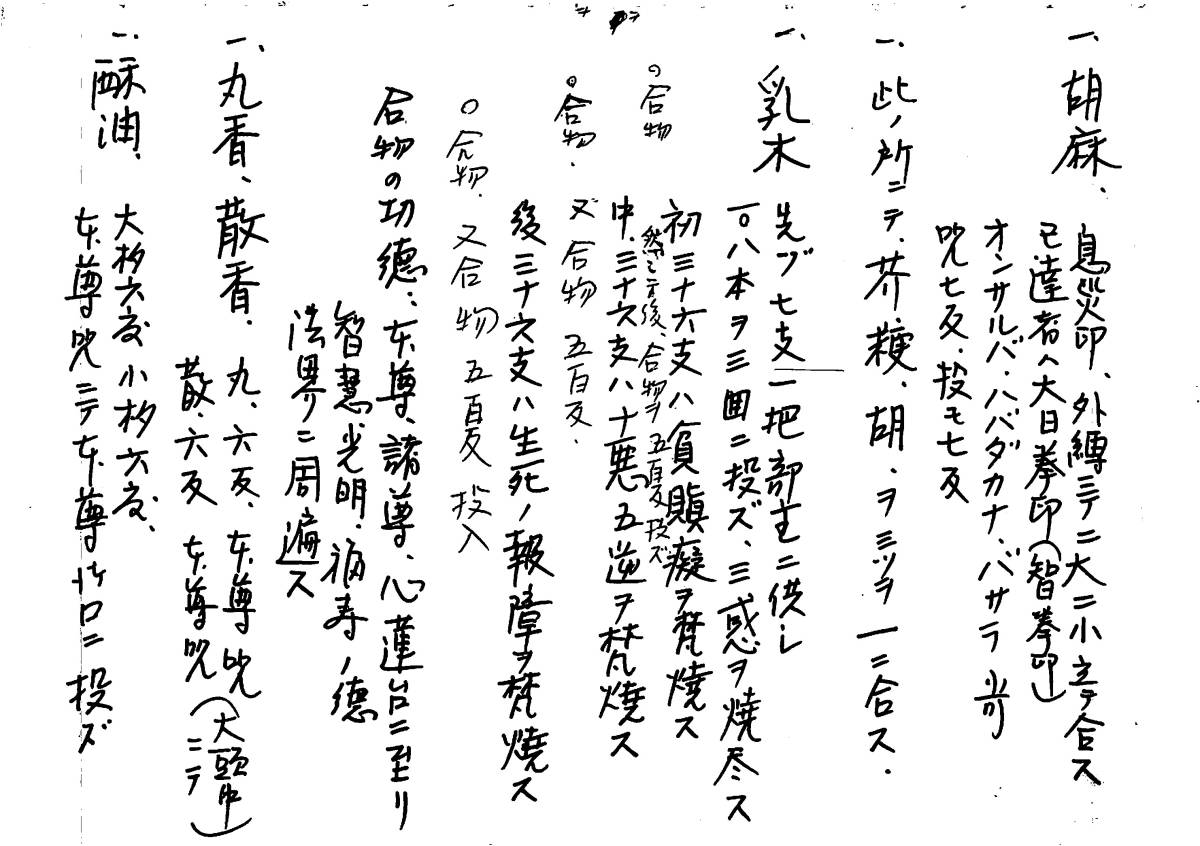 一、胡麻、息災印、外縛シテ二大二小立テ合ス
已達者ハ大日拳印(智拳印)
オンサルバ、ハバダカナ、バサラ
呪七反、投モ七反
一、此ノ所ニテ、芥、粳、胡、ヲミッヲ一ニ合ス.
一、乳木 先ヅ七支一把部主ニ供シ
一〇八本ヲ三囲ニ投ズ、三惑ヲ焼尽ス
の合物 初三十六支ハ貪瞋癡ヲ梵焼ス
然シテ後、合物ヲ五度投ズ
中、三十六支ハ十悪五逆ヲ梵焼ス
○合物. 又合物五百反.
後三十六支ハ生死ノ報障ヲ梵焼ス
○合物、又合物五度投入
合物の功徳、本尊、諸尊、心蓮台ニ至リ
智慧光明、福寿ノ徳
法界ニ周遍ス
一、丸香、散香、丸、六反、本尊呪(大頭中)
散、六反 本尊呪 ニテ
一、酥油、大杓六度小杓六度、
本尊呪ニテ本尊 口ニ投ズ